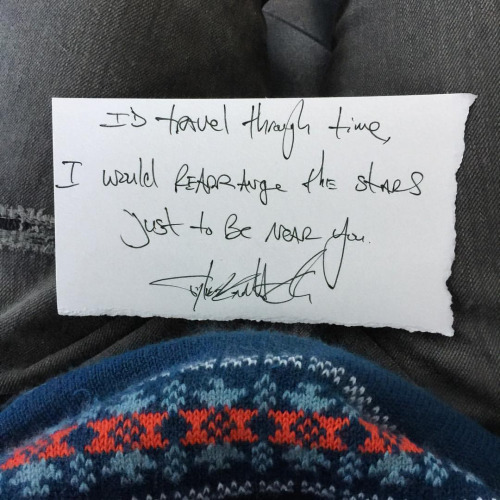 I'D travel through time,
I would REARRANge the STARS
just to Be NEAR you.